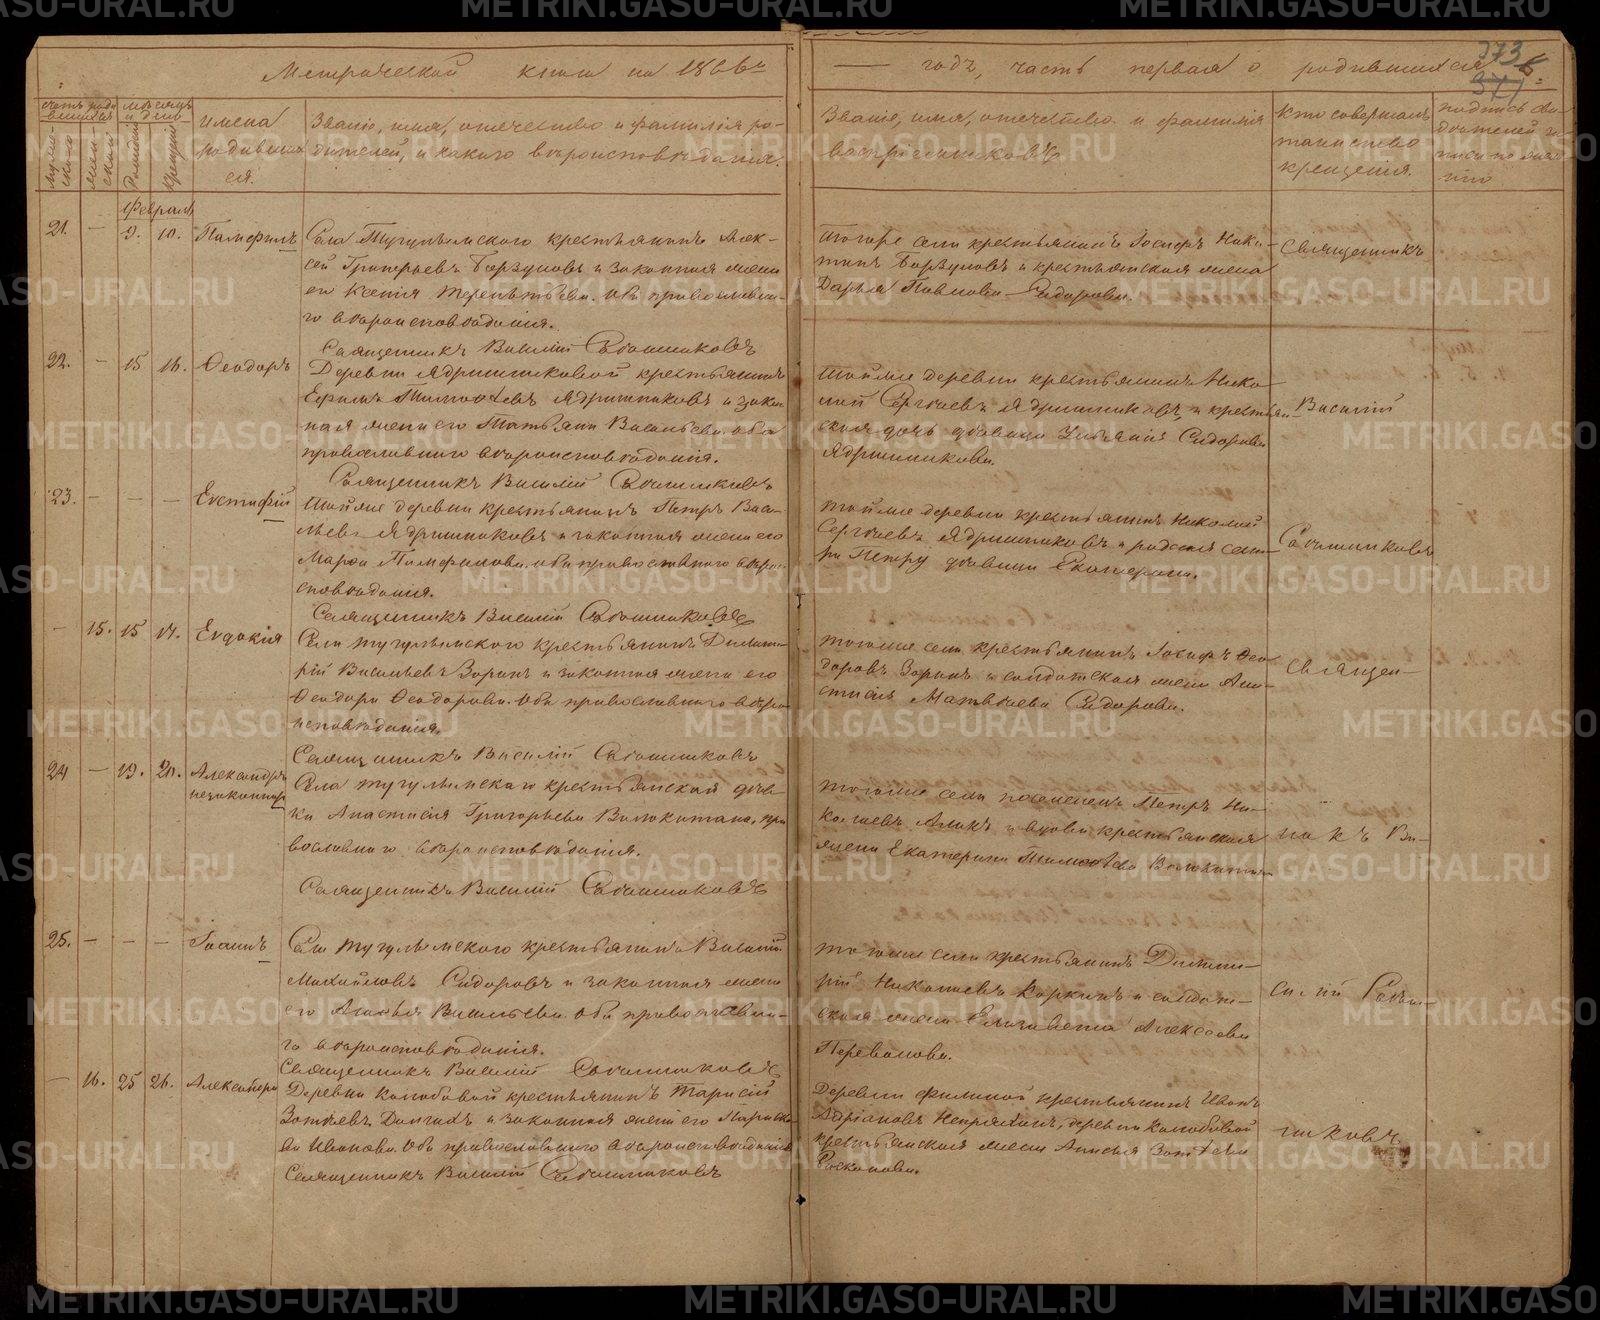 Метрической книги на 1866й
годъ, часть первая о родившихся
373
377
счетъ роди-
вшихся
мужес-
каго
женс-
кой
мѣсяцъ
и день
Рожденія
крещенія
имена
родивших-
ся.
Званіе, имя, отчество и фамилія ро-
дителей, и какого вѣроисповѣданія.
Званіе, имя, отчество и фамилія
воспріемниковъ
кто совершалъ
таинство
крещенія.
Февраль
21. - 9. 10. Памфилъ
Села Тугулымскаго крестьянинъ Алек-
сѣй Григорьевъ Борзуновъ и законная жена
его Ксенія Терентьева. оба православна-
го вѣроисповѣданія.
Священникъ Василій
тогоже села крестьянинъ Іосифъ Ники-
тинъ Борзуновъ и крестьянская жена
Дарья Павлова Сидорова.
священникъ
22. - 15 16. Ѳеодоръ
Деревни Ядрышниковой крестьянинъ
Ефимъ Тимофѣевъ Ядрышниковъ и закон-
ная жена его Татьяна Васильева. оба
православнаго вѣроисповѣданія.
Священникъ Василій
тойже деревни крестьянинъ Нико-
лай Сергѣевъ Ядрышниковъ и крестьян-
ская дочь дѣвица Сидорова
Ядрышникова.
Василій
23. - - - Евстафій
тойже деревни крестьянинъ Петръ Васи-
льевъ Ядрышниковъ и законная жена его
Марѳа Памфилова. оба православнаго вѣрои-
сповѣданія.
Священникъ Василій
тойже деревни крестьянинъ Николай
Сергѣевъ Ядрышниковъ и родная сест-
ра Петру дѣвица Екатерина.
- 15. 15 17. Евдокія
Села тугулымскаго крестьянинъ Димит-
рій Васильевъ Зоринъ и законная жена его
Ѳеодора Ѳеодорова. Оба православнаго вѣро-
исповѣданія.
Священникъ Василій
тогоже села крестьянинъ Іосифъ Ѳео-
доровъ Зоринъ и солдатская жена Ана-
стасія Матвѣева Сидорова.
священ-
24 - 19. 20. Александръ
незаконный
Села тугулымскаго крестьянская дѣв-
ка Анастасія Григорьева Волокитина, пра
вославнаго вѣроисповѣданія.
Священникъ Василій
тогоже села поселенецъ Петръ Ни-
колаевъ и вдова крестьянская
жена Екатерина Тимофѣева Волокитина
никъ Ва-
25. - - - Іоаннъ
Села тугулымскаго крестьянинъ Василій
Михайловъ Сидоровъ и законная жена
его Агафья Васильева. Оба православна-
го вѣроисповѣданія.
Священникъ Василій
тогоже села крестьянинъ Димит-
рій Николаевъ Коркинъ и солдат-
ская жена Елизавета Алексѣева
Перевалова.
силій
- 16. 25 26. Александра
Деревни Колобовой крестьянинъ Тарасій
Зотѣевъ Долгихъ и законная жена его Параске-
ва Иванова. Оба православнаго вѣроисповѣданія
Священникъ Василій
Деревни Филиной крестьянинъ Иванъ
Адріановъ Непряхинъ, деревни Колобовой
крестьянская жена Анисья Зотѣева
никовъ